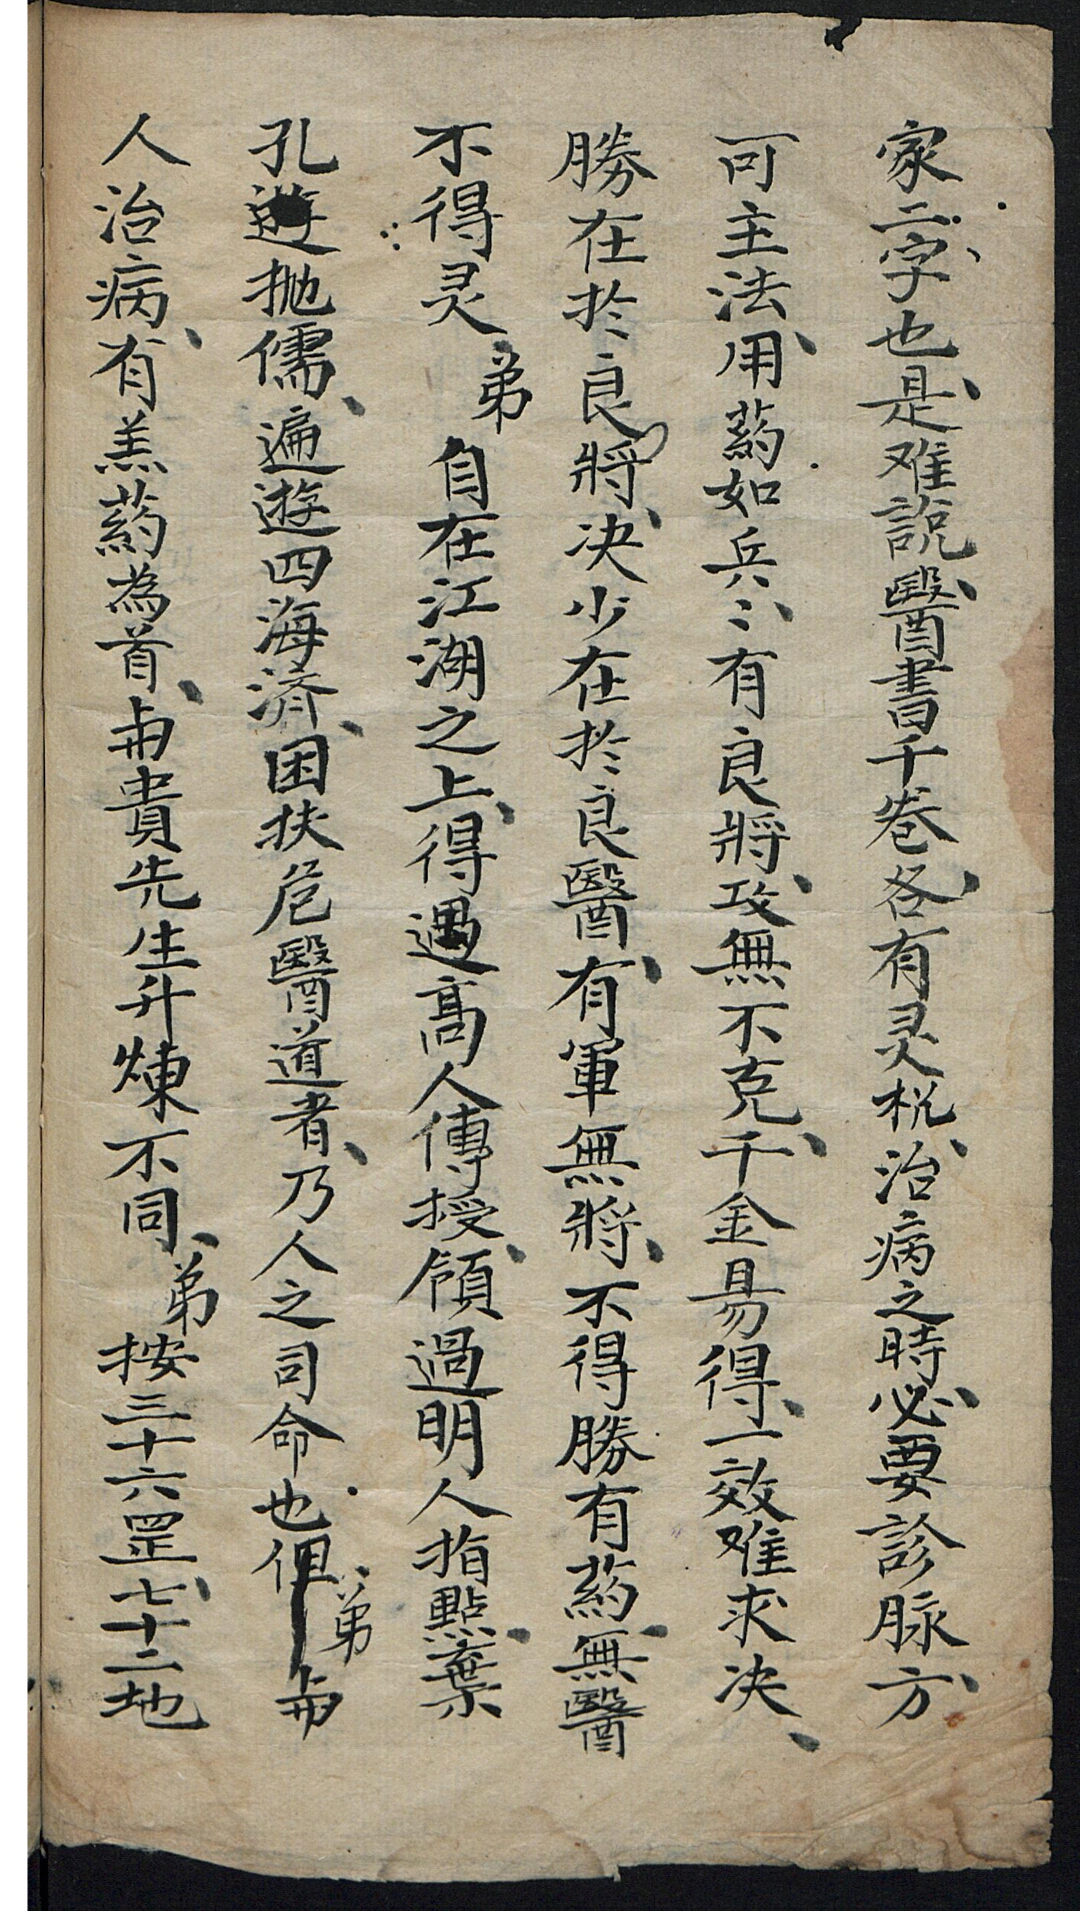 家二字也是难說醫書千卷各有灵枕治病之時必要診脉方
可主法用葯如兵〻有良將攻無不克千金易得一效难求决
勝在扵良將决少在扵良醫有軍無將不得勝有葯無醫
不得灵弟自在江湖之上得遇高人傳授領過明人指點棄
孔遊抛儒遍遊四海済困扶危醫道者乃人之司命也但弟
人治病有羔葯為首貴先生升煉不同弟按三十六罡七十二地